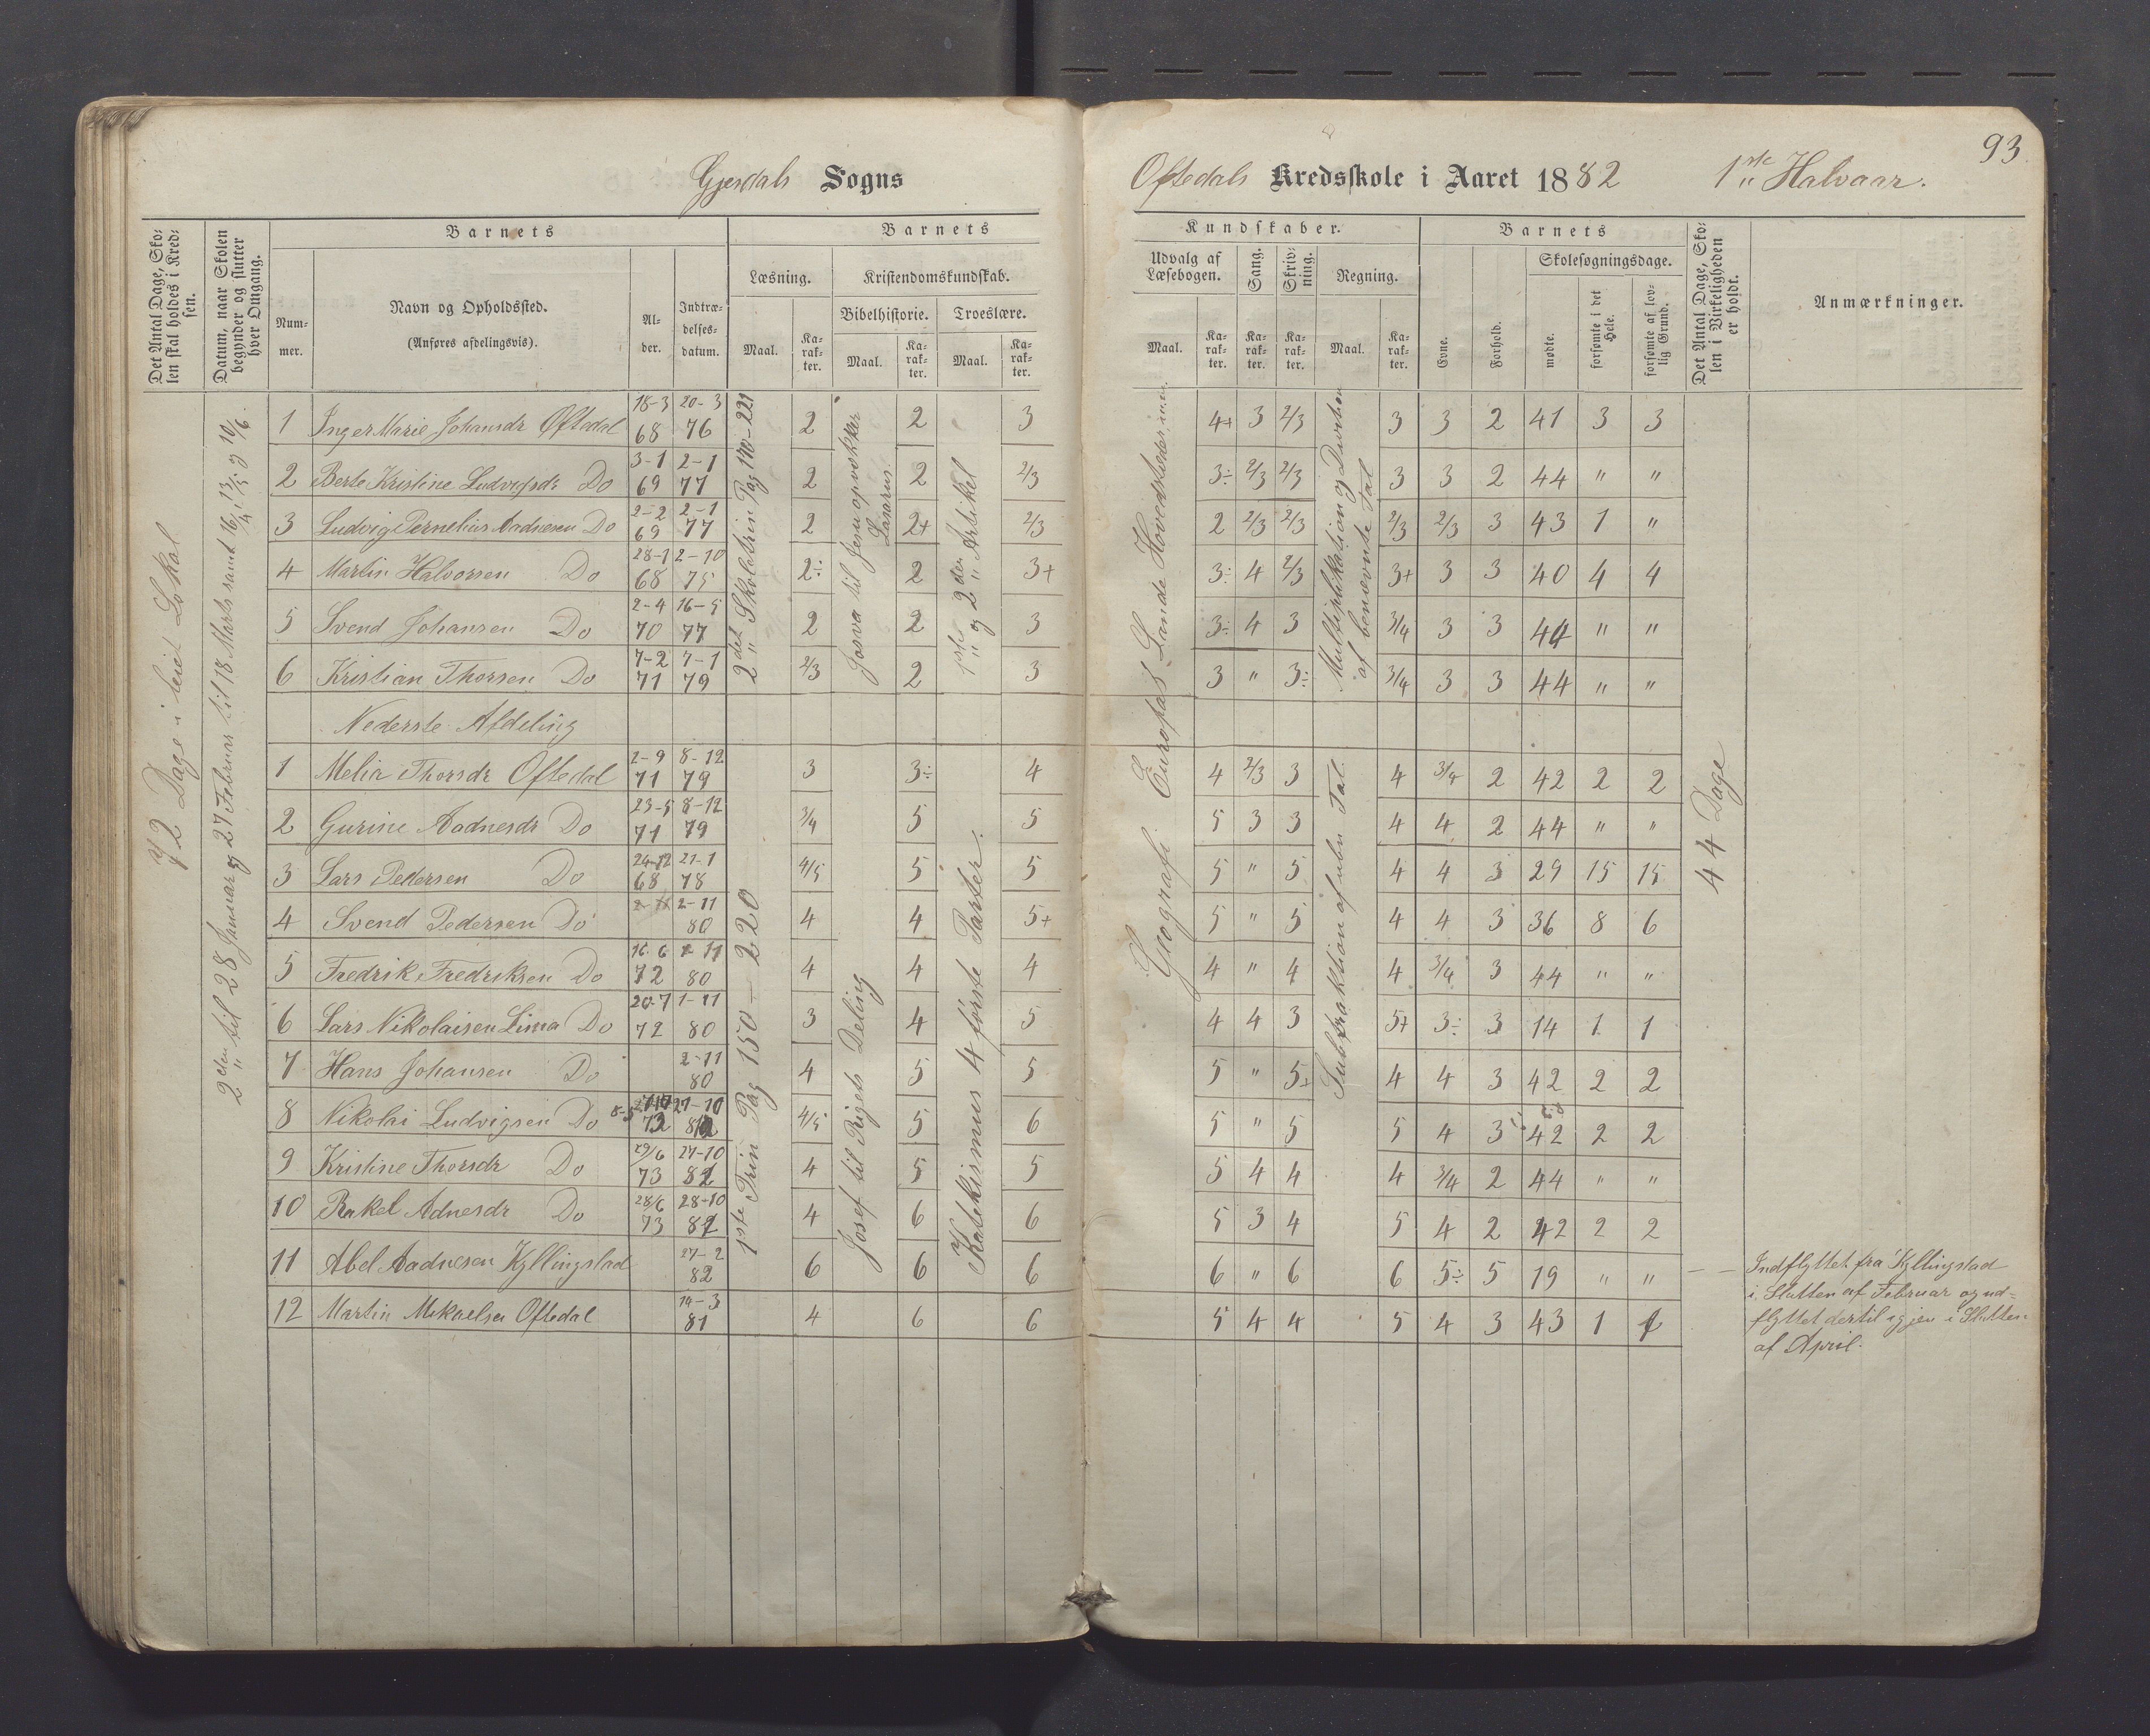 93
Gjesdals Sogns
Oftedals Kredsskole i Aaret 1882 1ste Halvaar.
Det Antal Dage, Sko-
len skal holdes i Kred-
sen.
Datum, naar Skolen
begynder og slutter
hver Omgang.
Barnets
Num-
mer.
Navn og Opholdssted.
(Anføres afdelingsvis).
Al-
der.
Indtræ-
delses-
datum.
Barnets
Læsning.
Maal.
Ka-
rak-
ter.
Kristendomskundskab.
Bibelhistorie.
Maal.
Ka-
rak-
ter.
Troeslære.
Maal.
Ka-
rak-
ter.
Kundskaber.
Udvalg af
Læsebogen.
Maal.
Ka-
rak-
ter.
Sang.
Ka-
rak-
ter.
Skriv-
ning.
Ka-
rak-
ter.
Regning.
Maal.
Ka-
rak-
ter.
Barnets
Evne.
Forhold.
Skolesøgningsdage.
mødte.
forsømte i det
Hele.
forsømte af lov-
lig Grund.
Det Antal Dage, Sko-
len i Virkeligheden
er holdt.
Anmærkninger.
72 Dage i leiet Lokal
2den til 28 Januar og 27 Februar til 18 Marts samt 16/4, 13/5 og 10/6.
2det Skoletrin Pag 170-221
Josva til Jesu opvækker
Lasarus.
1ste og 2den Artikel
Geografi. Europas Lande Hovedstæder m.m.
Multiplikation og Division
af benevnte Tal
44 Dage
1 Inger Marie Johansdr Oftedal 18-3 68 20-3 76 2 2 3 4+ 3 2/3 3 3 2 41 3 3
2 Berte Kristine Ludvigsdr Do 3-1 69 2-1 77 2 2 2/3 3÷ 2/3 2/3 3 3 2 44 " "
3 Ludvig Pernelius Aadnesen Do 2-2 69 2-1 77 2 2+ 2/3 2 2/3 2/3 2/3 2/3 3 43 1 "
4 Martin Halvorsen Do 28-1 68 2-10 75 2÷ 2 3+ 3÷ 4 2/3 3+ 3 3 40 4 4
5 Svend Johansen Do 2-4 70 16-5 77 2 2 3 3÷ 4 3 3/4 3 3 44 " "
6 Kristian Thorsen Do 7-2 71 7-1 79 2/3 2 3 3 " 3÷ 3/4 3 3 44 " "
Nederste Afdeling
1ste Trin Pag 150-220
Josef til Rigets Deling
Katekismus 4 første Parter.
Subtraktion af ubn Tal
1 Melia Thorsdr Oftedal 2-9 71 8-12 79 3 3÷ 4 4 2/3 3 4 3/4 2 42 2 2
2 Gurine Aadnesdr Do 23-5 71 8-12 79 3/4 5 5 5 3 3 4 4 2 44 " "
3 Lars Pedersen Do 24-12 68 21-1 78 4/5 5 5 5 " 5 4 4 3 29 15 15
4 Svend Pedersen Do 2-11 80 4 4 5+ 5 " 5 4 4 3 36 8 6
5 Fredrik Fredriksen Do 16-6 72 2-11 80 4 4 4 4 " 4 4 3/4 3 44 " "
6 Lars Nikolaisen Lima Do 20-7 72 1-11 80 3 4 5 4 4 3 5+ 3÷ 3 14 1 1
7 Hans Johansen Do 2-11 80 4 5 5 5 " 5+ 4 4 3 42 2 2
8 Nikolai Ludvigsen Do 8-5 72 27-10 4/5 5 6 5 " 5 5 4 3 42 2 2
9 Kristine Thorsdr Do 29/6 73 27-10 4 5 5 5 4 4 4 3/4 2 44 " "
10 Rakel Adnesdr Do 28/6 73 28-10 4 6 6 5 3 4 5 4 2 42 2 2
11 Abel Aadnesen Kyllingstad 27-2 82 6 6 6 6 " 6 6 5÷ 5 19 " " — — Indflyttet fra Kyllingstad
i Slutten af Februar og ud-
flyttet dertil igjen i Slutten
af April.
12 Martin Mikaelsen Oftedal 14-3 81 4 6 6 5 4 4 5 4 3 43 1 1